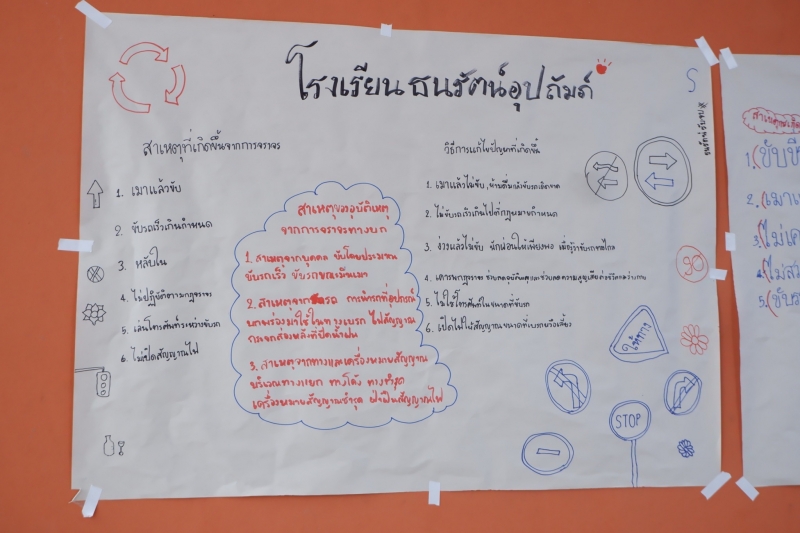 โรงเรียน ธนรัตน์อุปถัมภ์
S
สาเหตุที่เกิดขึ้นจากการจราจร
1. เมาแล้วขับ
2. ขับรถเร็วเกินกำหนด
3. หลับใน
4. ไม่ปฏิบัติตามกฎจราจร
5. เล่นโทรศัพท์ระหว่างขับรถ
6. ไม่เปิดสัญญาณไฟ
สาเหตุของอุบัติเหตุ
จากการจราจรทางบก
1. สาเหตุจากบุคคล ขับโดยประมาท
ขับรถเร็ว ขับรถขณะมึนเมา
2. สาเหตุจากรถ การที่รถที่อุปกรณ์
บกพร่องมาใช้ในทางเบรก ไฟสัญญาณ
กระจกส่องหลังที่ปัดน้ำฝน
3. สาเหตุจากทางและเครื่องหมายสัญญาณ
บริเวณทางแยก ทางโค้ง ทางชำรุด
เครื่องหมายสัญญาณชำรุด ฝ่าฝืนสัญญาณไฟ
วิธีการแก้ไขปัญหาที่เกิดขึ้น
1. เมาแล้วไม่ขับ, ห้ามดื่มแล้วขับรถเด็ดขาด
2. ไม่ขับรถเร็วเกินไปที่กฎหมายกำหนด
3. ง่วงแล้วไม่ขับ พักผ่อนให้เพียงพอ เมื่อรู้ว่าขับรถทางไกล
4. เคารพกฎจราจร ช่วยลดอุบัติเหตุและช่วยลดความสูญเสียต่อชีวิตและร่างกาย
5. ไม่ใช้โทรศัพท์ในขณะที่ขับรถ
6. เปิดไฟให้สัญญาณขณะที่เบรกหรือเลี้ยว
90
ให้ทาง
STOP
สาเหตุที่เกิด
1. ขับขี่
2. เมาแ
3. ไม่เค
4. ไม่ส
5. ขับร